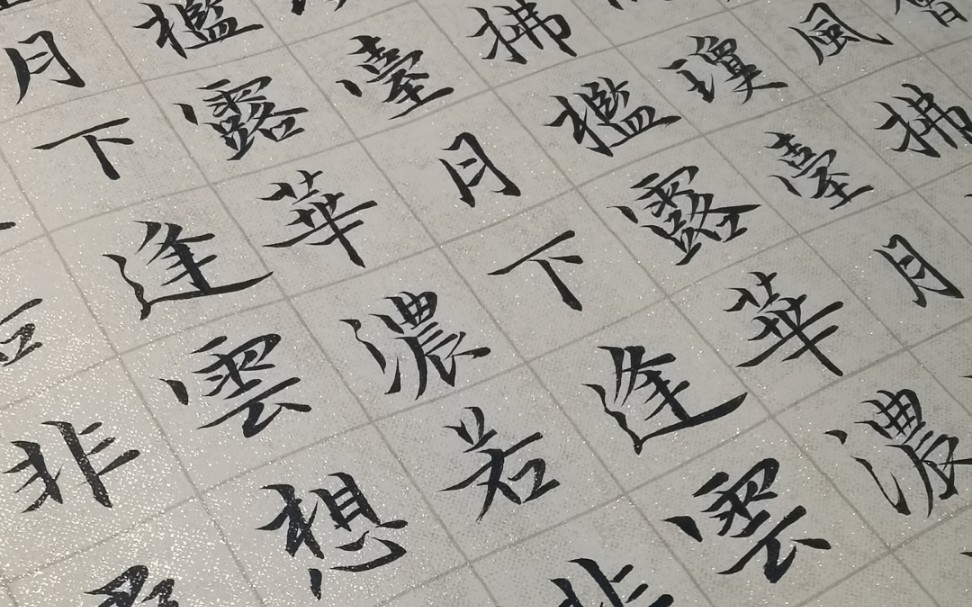 風拂
瓊臺月
拂檻露華濃
臺月下逢雲
檻露華濃若非
月下逢雲想
非